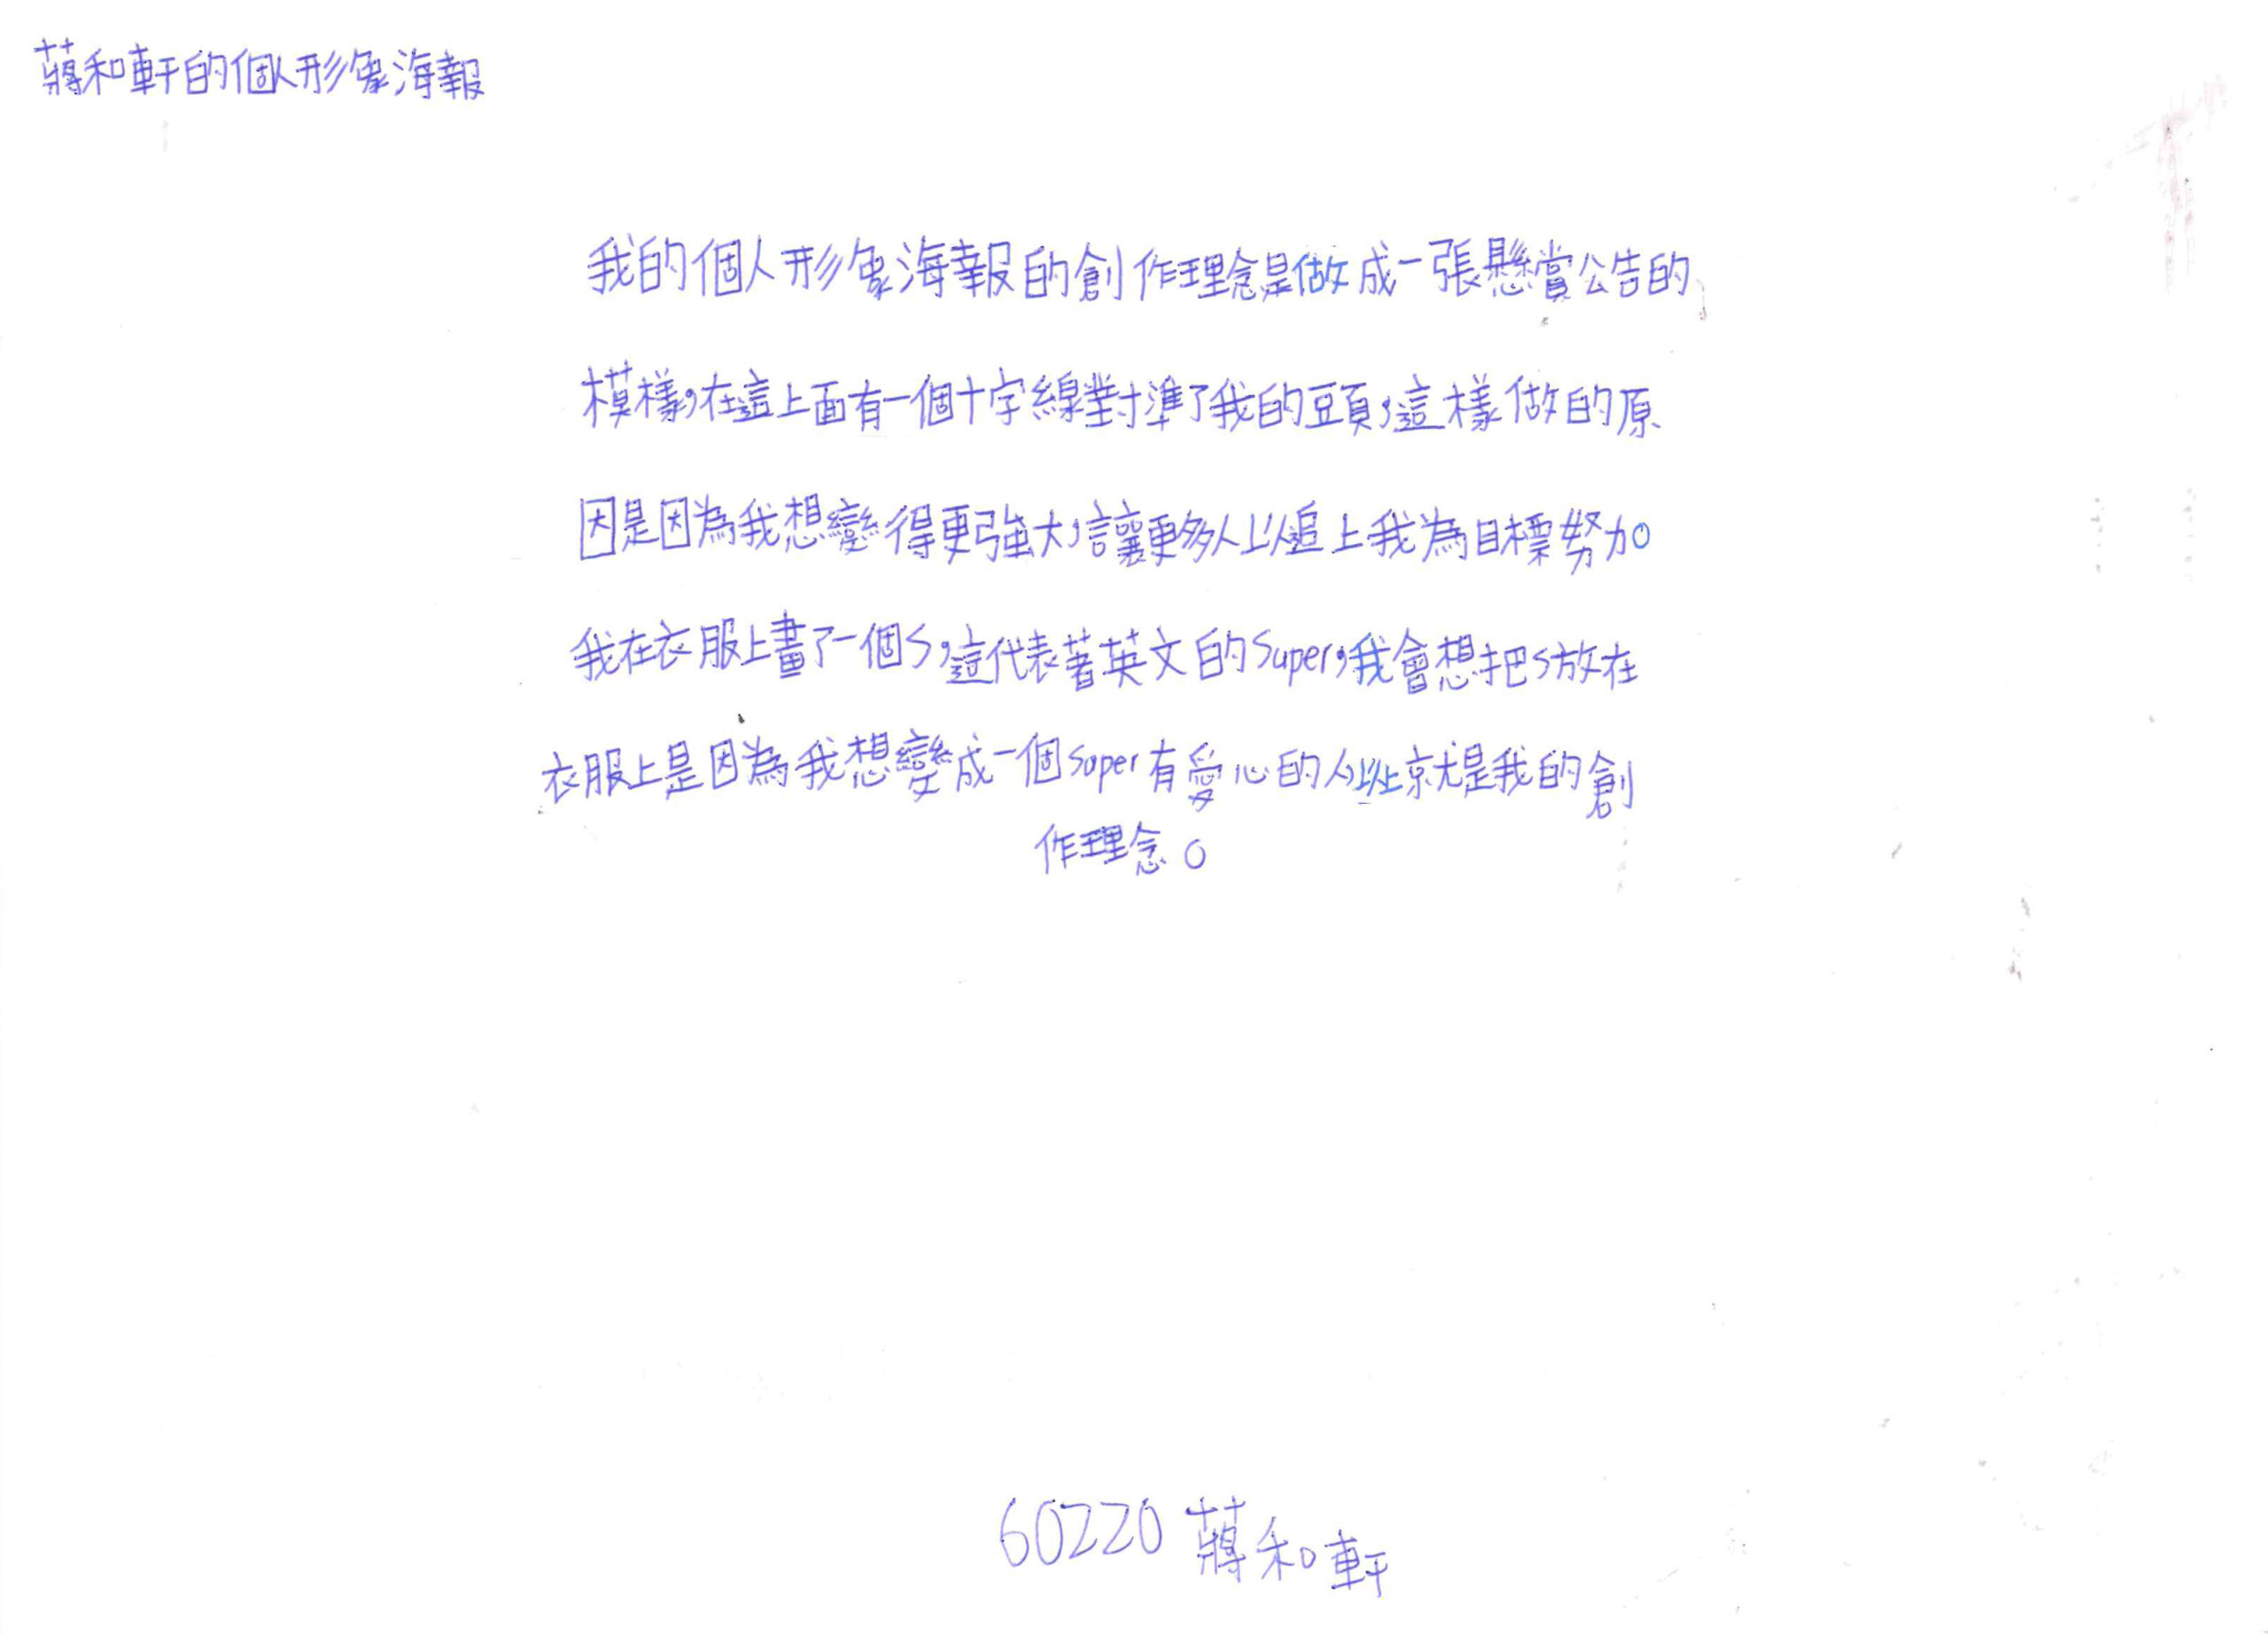 蔣和軒的個人形象海報
我的個人形象海報的創作理念是做成一張懸賞公告的
模樣,在這上面有一個十字線對準了我的頭,這樣做的原
因是因為我想變得更強大,讓更多人以追上我為目標努力。
我在衣服上畫了一個S,這代表著英文的Super,我會想把S放在
衣服上是因為我想變成一個super有愛心的人,以上就是我的創
作理念。
60220 蔣和軒